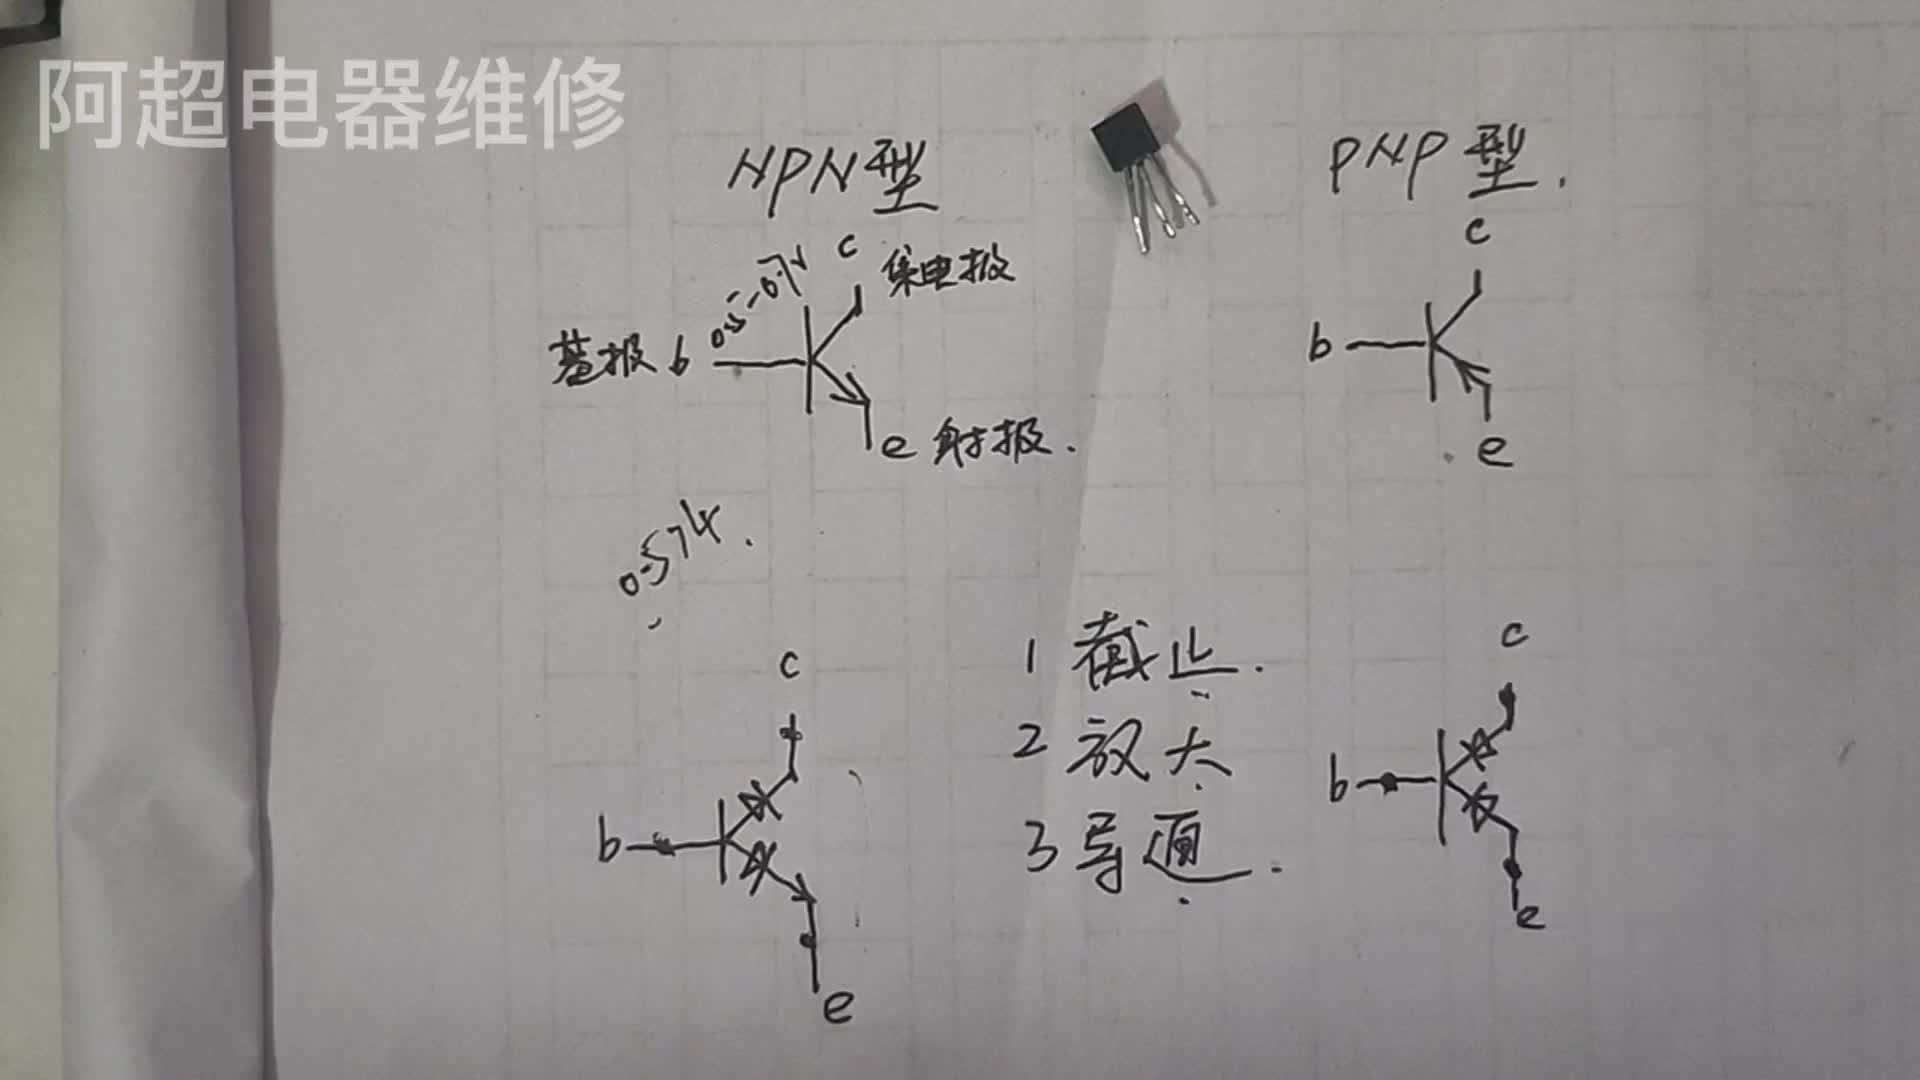 阿超电器维修
NPN型
PNP型.
c
集电报
c
0.5-0.7V
基报 b
b
e 射报.
e
0.574.
c
1 截止.
c
2 放大
b
3 导通.
b
e
e